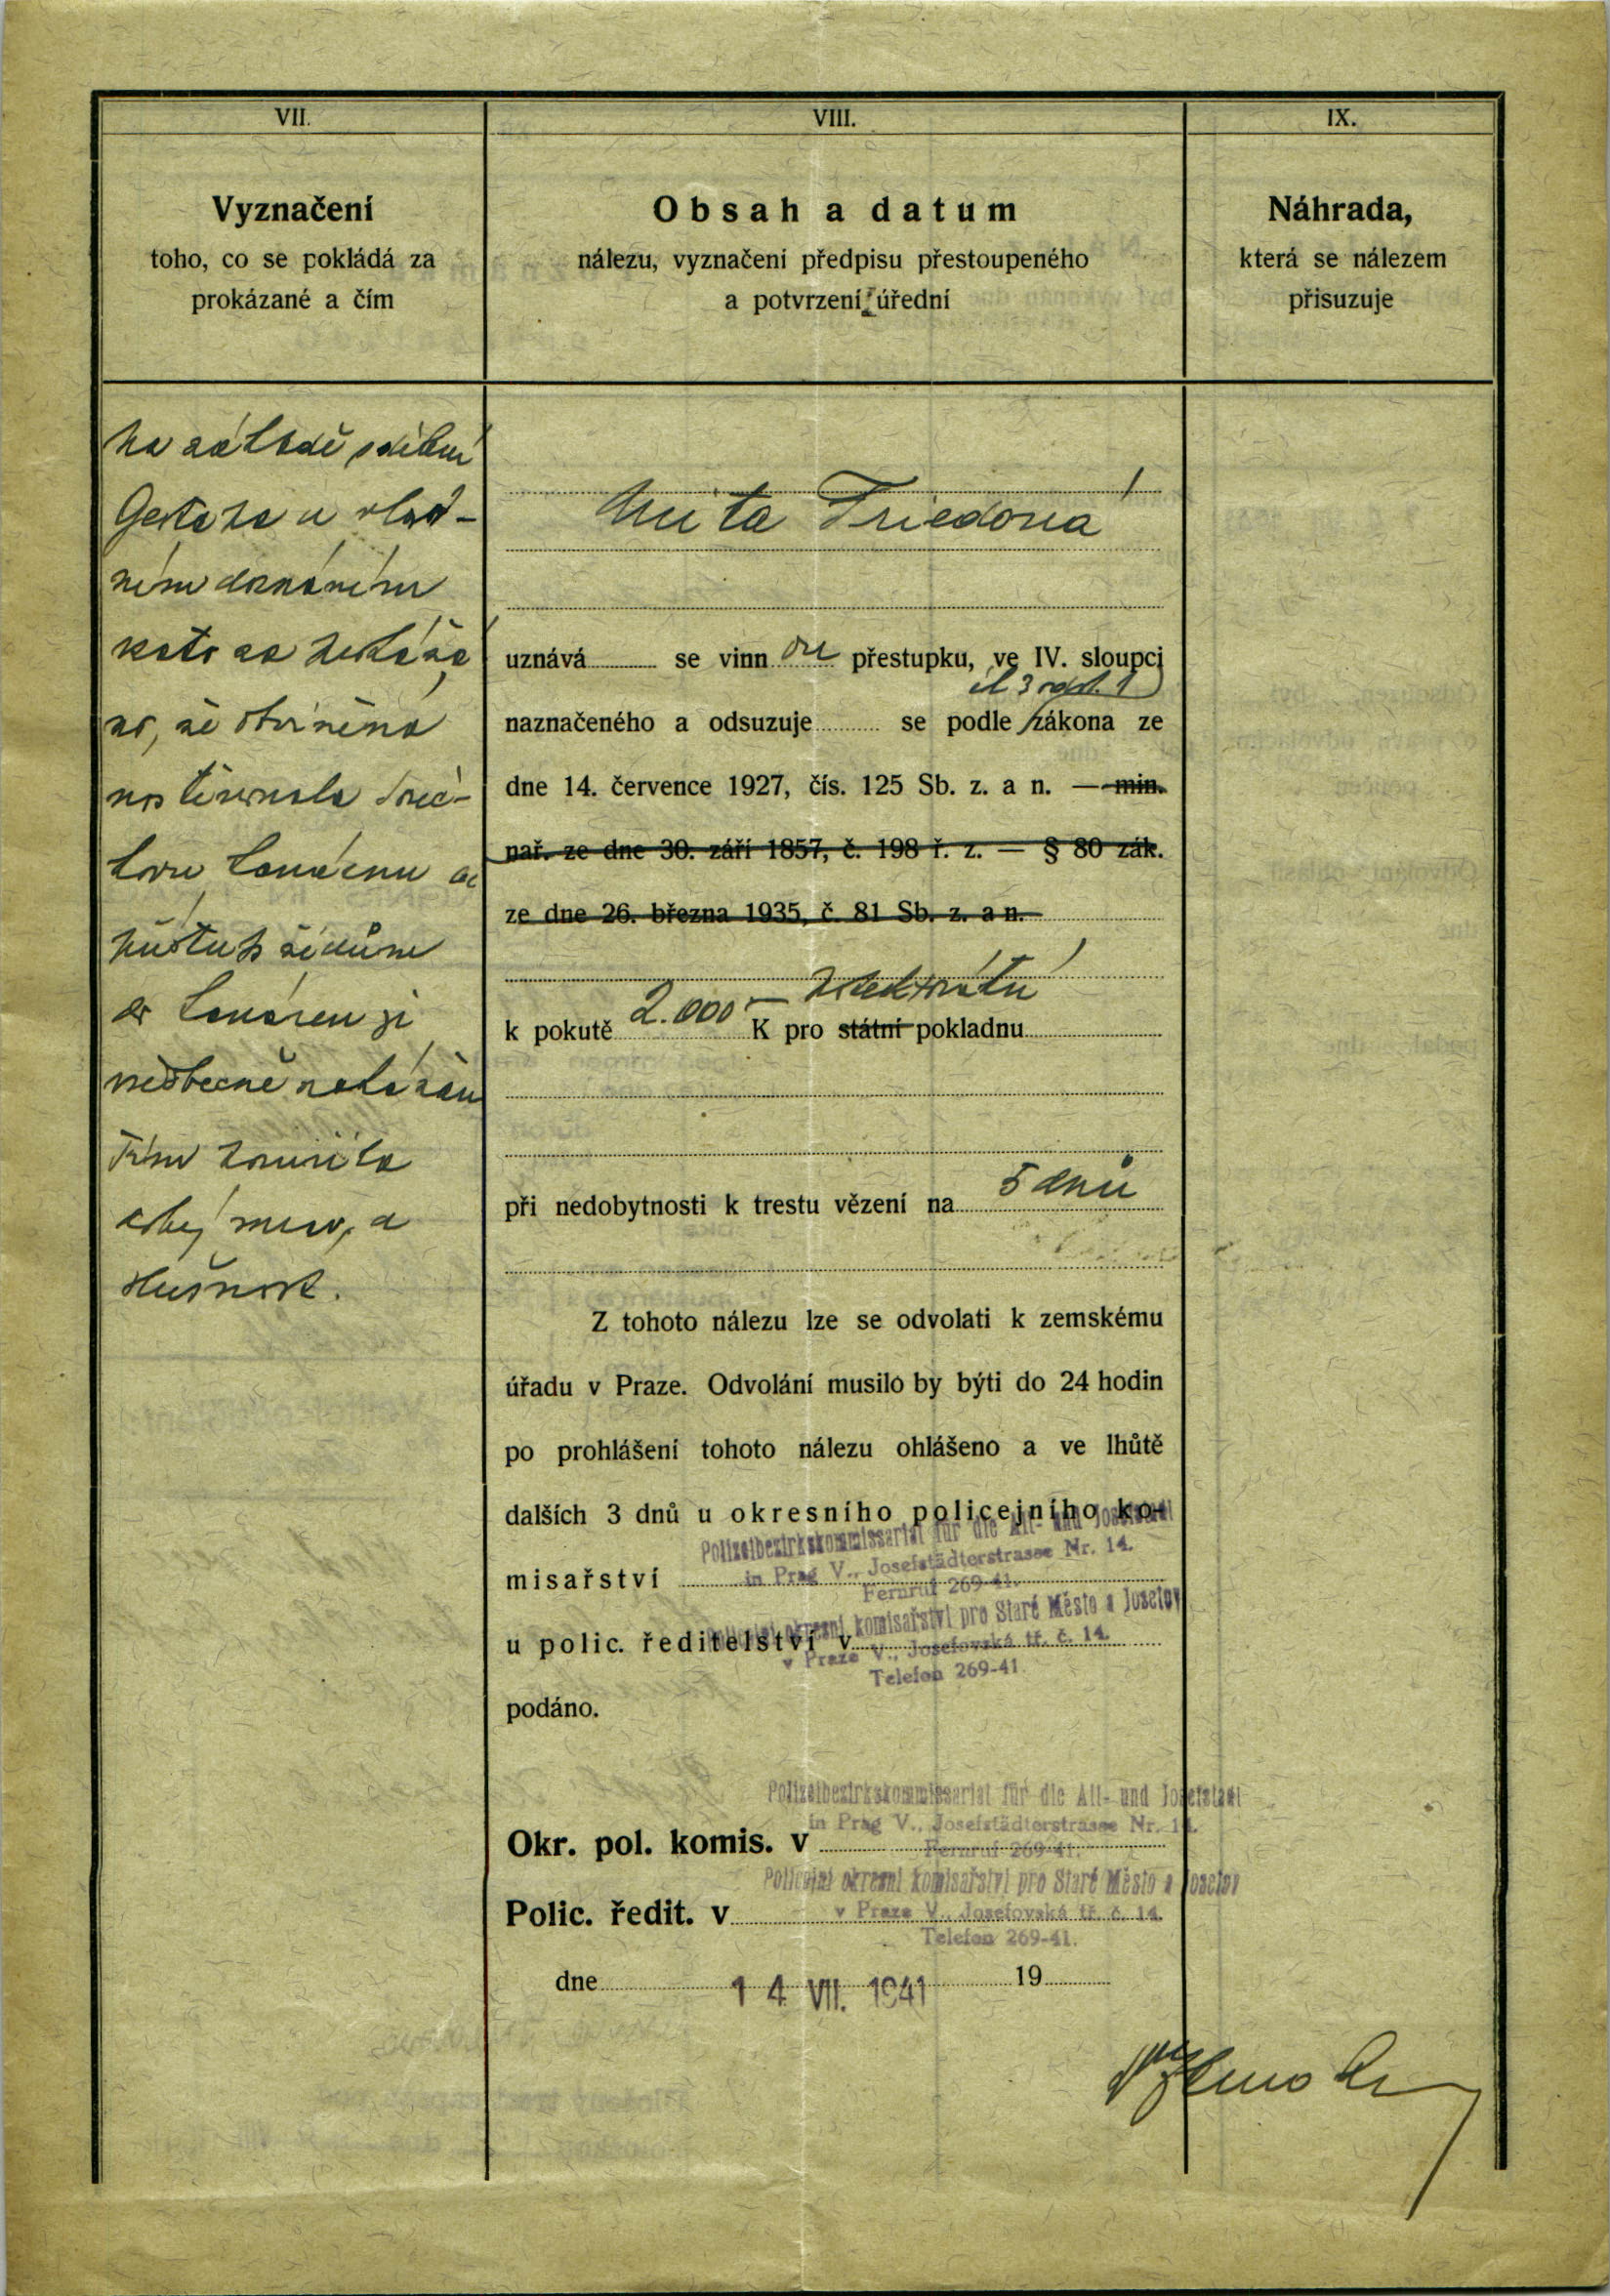 VII.
Vyznačení
toho, co se pokládá za
prokázané a čím
Na základě sdělení
Gestapa a vlast-
ním doznáním
se
no, že obviněná
navštívila
kavárnu ač
vstup židům
do kaváren je
všobecně zakázán
Tím zrušila
dobrý mrav, a
slušnost.
VIII.
Obsah a datum
nálezu, vyznačení předpisu přestoupeného
a potvrzení úřední
Anita Friedová
uznává se vinnou přestupku, ve IV. sloupci
čl 3 odst. 1
naznačeného a odsuzuje se podle zákona ze
dne 14. července 1927, čís. 125 Sb. z. a n. — min.
nař. ze dne 30. září 1857, č. 198 ř. z. — § 80 zák.
ze dne 26. března 1935, č. 81 Sb. z. a n.
k pokutě 2.000 – K pro státní pokladnu
při nedobytnosti k trestu vězení na 5 dnů
Z tohoto nálezu lze se odvolati k zemskému
úřadu v Praze. Odvolání musilo by býti do 24 hodin
po prohlášení tohoto nálezu ohlášeno a ve lhůtě
dalších 3 dnů u okresního policejního ko-
Polizeibezirkskommissariat für die Alt- und Josefstadt
misařství in Prag V., Josefstädterstrasse Nr. 14.
Fernruf 269-41.
Policejní okresní komisařství pro Staré Město a Josefov
u polic. ředitelství v
v Praze V., Josefovská tř. č. 14.
Telefon 269-41
podáno.
Polizeibezirkskommissariat für die Alt- und Josefstadt
in Prag V., Josefstädterstrasse Nr. 14.
Okr. pol. komis. v
Fernruf 269-41.
Policejní okresní komisařství pro Staré Město a Josefov
Polic. ředit. v v Praze V., Josefovská tř. č. 14.
Telefon 269-41.
dne 14 VII. 1941 19
IX.
Náhrada,
která se nálezem
přisuzuje